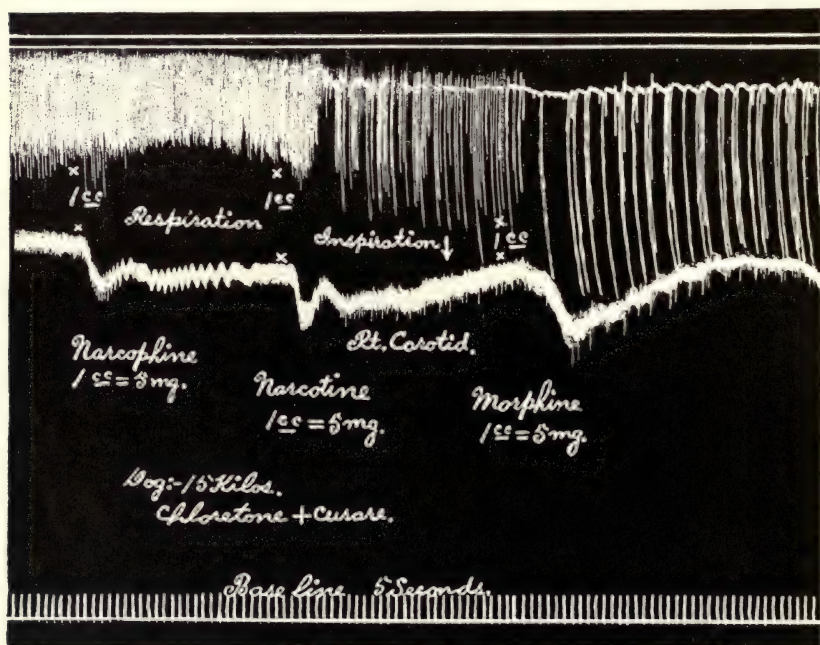 × ×
1 cc 1 cc
Respiration
×
1 cc
× × ×
Inspiration ↓
Rt. Carotid.
Narcophine
1 cc = 5 mg.
Narcotine
1 cc = 5 mg.
Morphine
1 cc = 5 mg.
Dog:- 15 Kilos.
Chloretone + Curare.
Base line 5 Seconds.